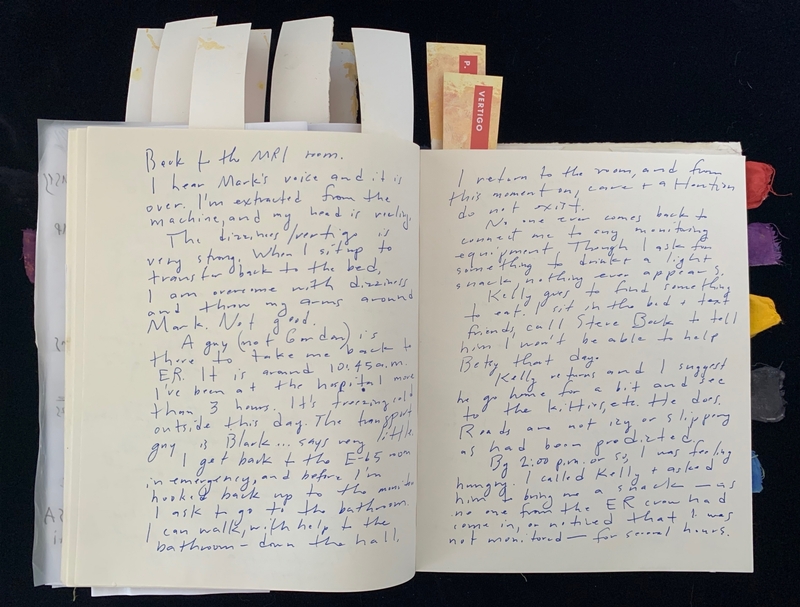 P.
VERTIGO
Back to the MRI room.
I hear Mark's voice and it is
over. I'm extracted from the
machine, and my head is reeling.
The dizziness/vertigo is
very strong. When I sit up to
transfer back to the bed,
I am overcome with dizziness
and throw my arms around
Mark. Not good.
A guy (not Gordon) is
there to take me back to
ER. It is around 10:45 a.m.
I've been at the hospital more
than 3 hours. It's freezing cold
outside this day. The transport
guy is Black... says very little
I get back to the E-65 room
in emergency, and before I'm
hooked back up to the monitor
I ask to go to the bathroom.
I can walk, with help to the
bathroom – down the hall.
I return to the room, and from
this moment on, care + attention
do not exist.
No one ever comes back to
connect me to any monitoring
equipment. Though I ask for
something to drink + a light
snack, nothing ever appears.
Kelly goes to find something
to eat. I sit in the bed + text
friends, call Steve to tell
him I won't be able to help
Betsy that day.
Kelly returns and I suggest
he go home for a bit and see
to the kitties, etc. He does.
Roads are not icy or slippery
as had been predicted.
By 2:00 p.m. or so, I was feeling
hungry. I called Kelly + asked
him to bring me a snack – as
no one from the ER crew had
come in, or noticed that I was
not monitored – for several hours.